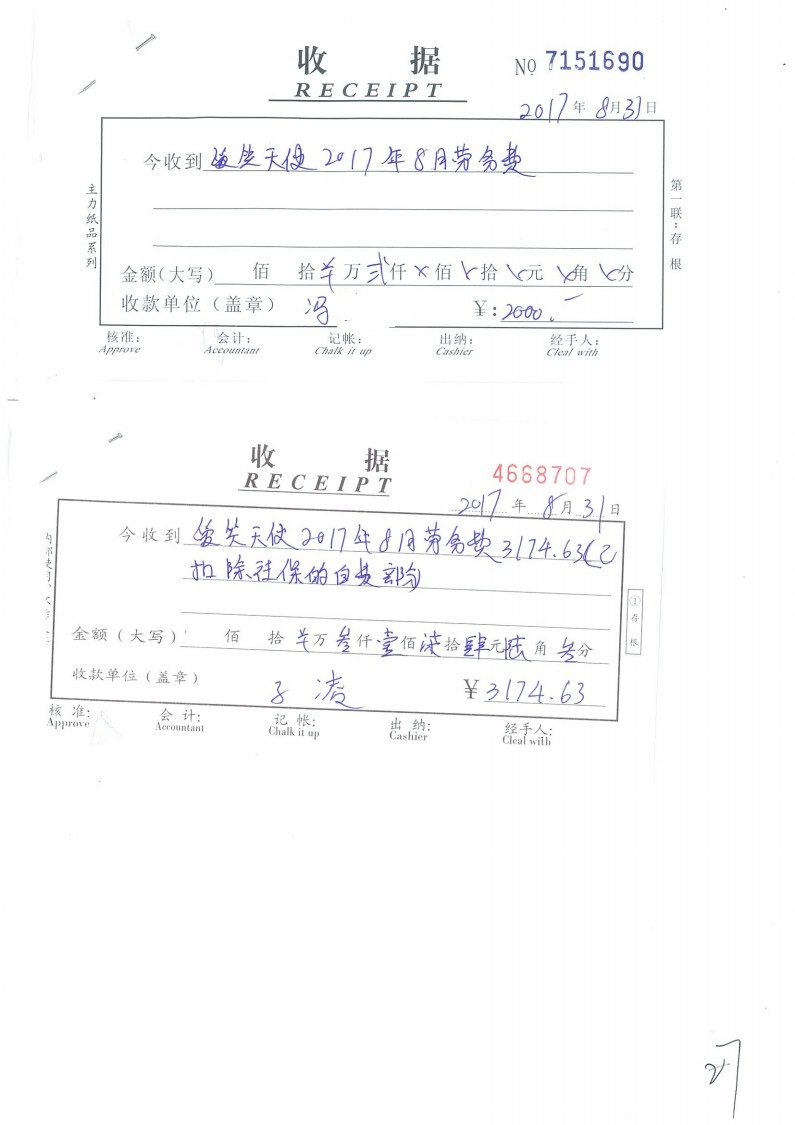 收 据
RECEIPT
NO 7151690
2017 年 8 月 31 日
今收到 微笑天使 2017年8月劳务费
金额(大写) 佰 拾 ¥ 万 贰 仟 × 佰 × 拾 × 元 × 角 × 分
收款单位(盖章) 冯 ¥: 2000.一
核准: 会计: 记帐: 出纳: 经手人:
Approve Accountant Chalk it up Cashier Cleal with
主力纸品系列
第一联:存根
收 据
RECEIPT
4668707
2017 年 8 月 31 日
今收到 微笑天使 2017年8月劳务费 3174.63(已
扣除社保的自费部分)
金额(大写) 佰 拾 ¥ 万 叁 仟 壹 佰 柒 拾 肆 元 陆 角 叁 分
收款单位(盖章) 凌 ¥ 3174.63
核准: 会计: 记帐: 出纳: 经手人:
Approve Accountant Chalk it up Cashier Cleal with
①存根